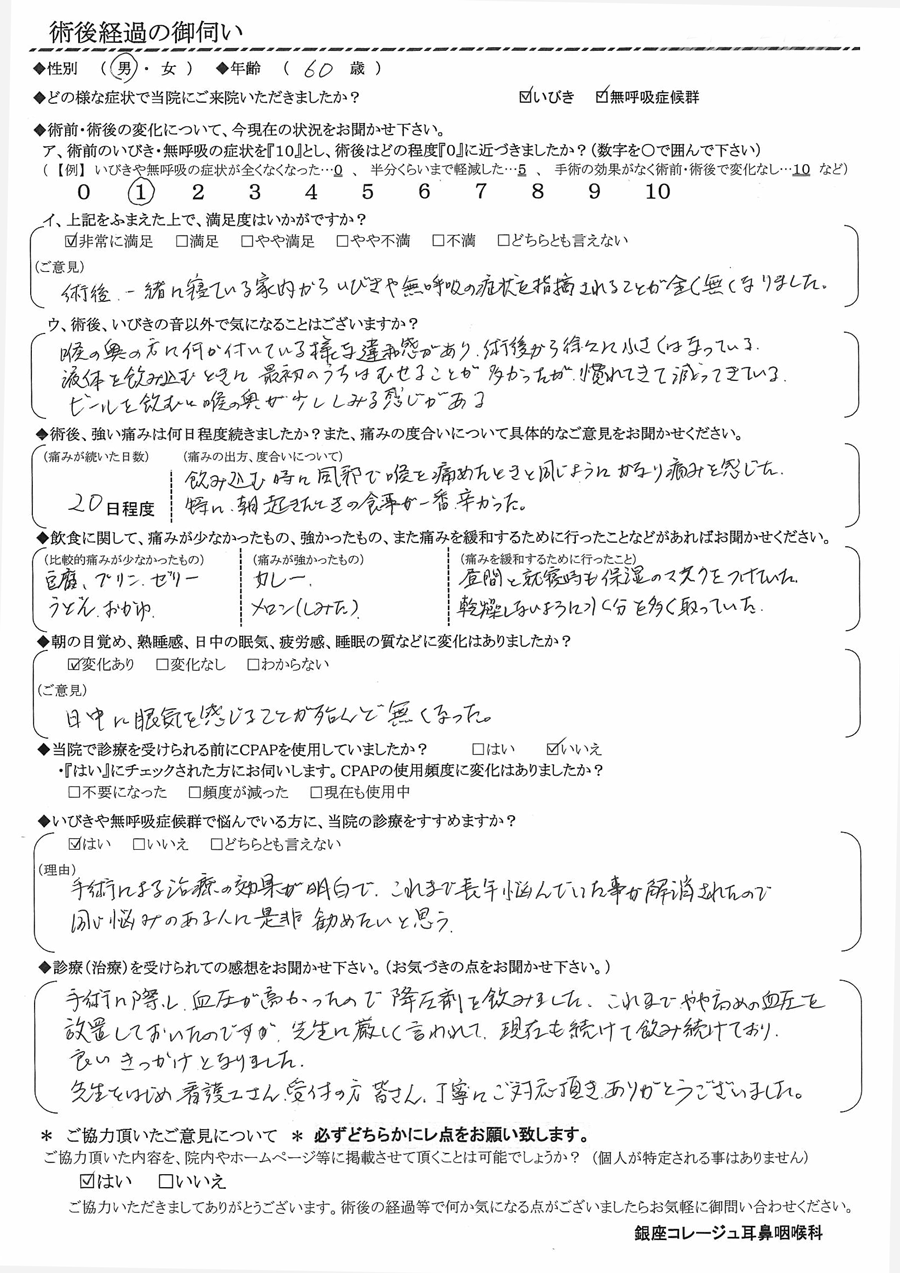 術後経過の御伺い
◆性別 （ 男 ・ 女 ） ◆年齢 （ 60 歳 ）
◆どの様な症状で当院にご来院いただきましたか？ ☑いびき ☑無呼吸症候群
◆術前・術後の変化について、今現在の状況をお聞かせ下さい。
ア、術前のいびき・無呼吸の症状を『10』とし、術後はどの程度『0』に近づきましたか？（数字を〇で囲んで下さい）
（【例】 いびきや無呼吸の症状が全くなくなった…0 、 半分くらいまで軽減した…5 、 手術の効果がなく術前・術後で変化なし…10 など）
0 1 2 3 4 5 6 7 8 9 10
イ、上記をふまえた上で、満足度はいかがですか？
☑非常に満足 □満足 □やや満足 □やや不満 □不満 □どちらとも言えない
（ご意見）
術後、一緒に寝ている家内からいびきや無呼吸の症状を指摘されることが全く無くなりました。
ウ、術後、いびきの音以外で気になることはございますか？
喉の奥の方に何か付いている様な違和感があり、術後から徐々に小さくはなっている。
液体を飲み込むときに最初のうちはむせることが多かったが、慣れてきて減ってきている。
ビールを飲むと喉の奥が少ししみる感じがある
◆術後、強い痛みは何日程度続きましたか？また、痛みの度合いについて具体的なご意見をお聞かせください。
（痛みが続いた日数） （痛みの出方、度合いについて）
飲み込む時に風邪で喉を痛めたときと同じようにかなり痛みを感じた。
20日程度 特に、朝起きたときの食事が一番辛かった。
◆飲食に関して、痛みが少なかったもの、強かったもの、また痛みを緩和するために行ったことなどがあればお聞かせください。
（比較的痛みが少なかったもの） （痛みが強かったもの） （痛みを緩和するために行ったこと）
豆腐、プリン、ゼリー カレー、 昼間と就寝時も保湿のマスクをつけていた
うどん、おかゆ メロン（しみた） 乾燥しないように水分を多く取っていた。
◆朝の目覚め、熟睡感、日中の眠気、疲労感、睡眠の質などに変化はありましたか？
☑変化あり □変化なし □わからない
（ご意見）
日中に眠気を感じることが殆んど無くなった。
◆当院で診療を受けられる前にCPAPを使用していましたか？ □はい ☑いいえ
・『はい』にチェックされた方にお伺いします。CPAPの使用頻度に変化はありましたか？
□不要になった □頻度が減った □現在も使用中
◆いびきや無呼吸症候群で悩んでいる方に、当院の診療をすすめますか？
☑はい □いいえ □どちらとも言えない
（理由）
手術による治療の効果が明白で、これまで長年悩んでいた事が解消されたので
同じ悩みのある人に是非勧めたいと思う。
◆診療（治療）を受けられての感想をお聞かせ下さい。（お気づきの点をお聞かせ下さい。）
手術に際し、血圧が高かったので降圧剤を飲みました。これまでやや高めの血圧を
放置しておいたのですが、先生に厳しく言われて、現在も続けて飲み続けており、
良いきっかけとなりました。
先生をはじめ看護士さん、受付の方皆さん、丁寧にご対応頂きありがとうございました。
＊ ご協力頂いたご意見について ＊ 必ずどちらかにレ点をお願い致します。
ご協力頂いた内容を、院内やホームページ等に掲載させて頂くことは可能でしょうか？ （個人が特定される事はありません）
☑はい □いいえ
ご協力いただきましてありがとうございます。術後の経過等で何か気になる点がございましたらお気軽に御問い合わせください。
銀座コレージュ耳鼻咽喉科